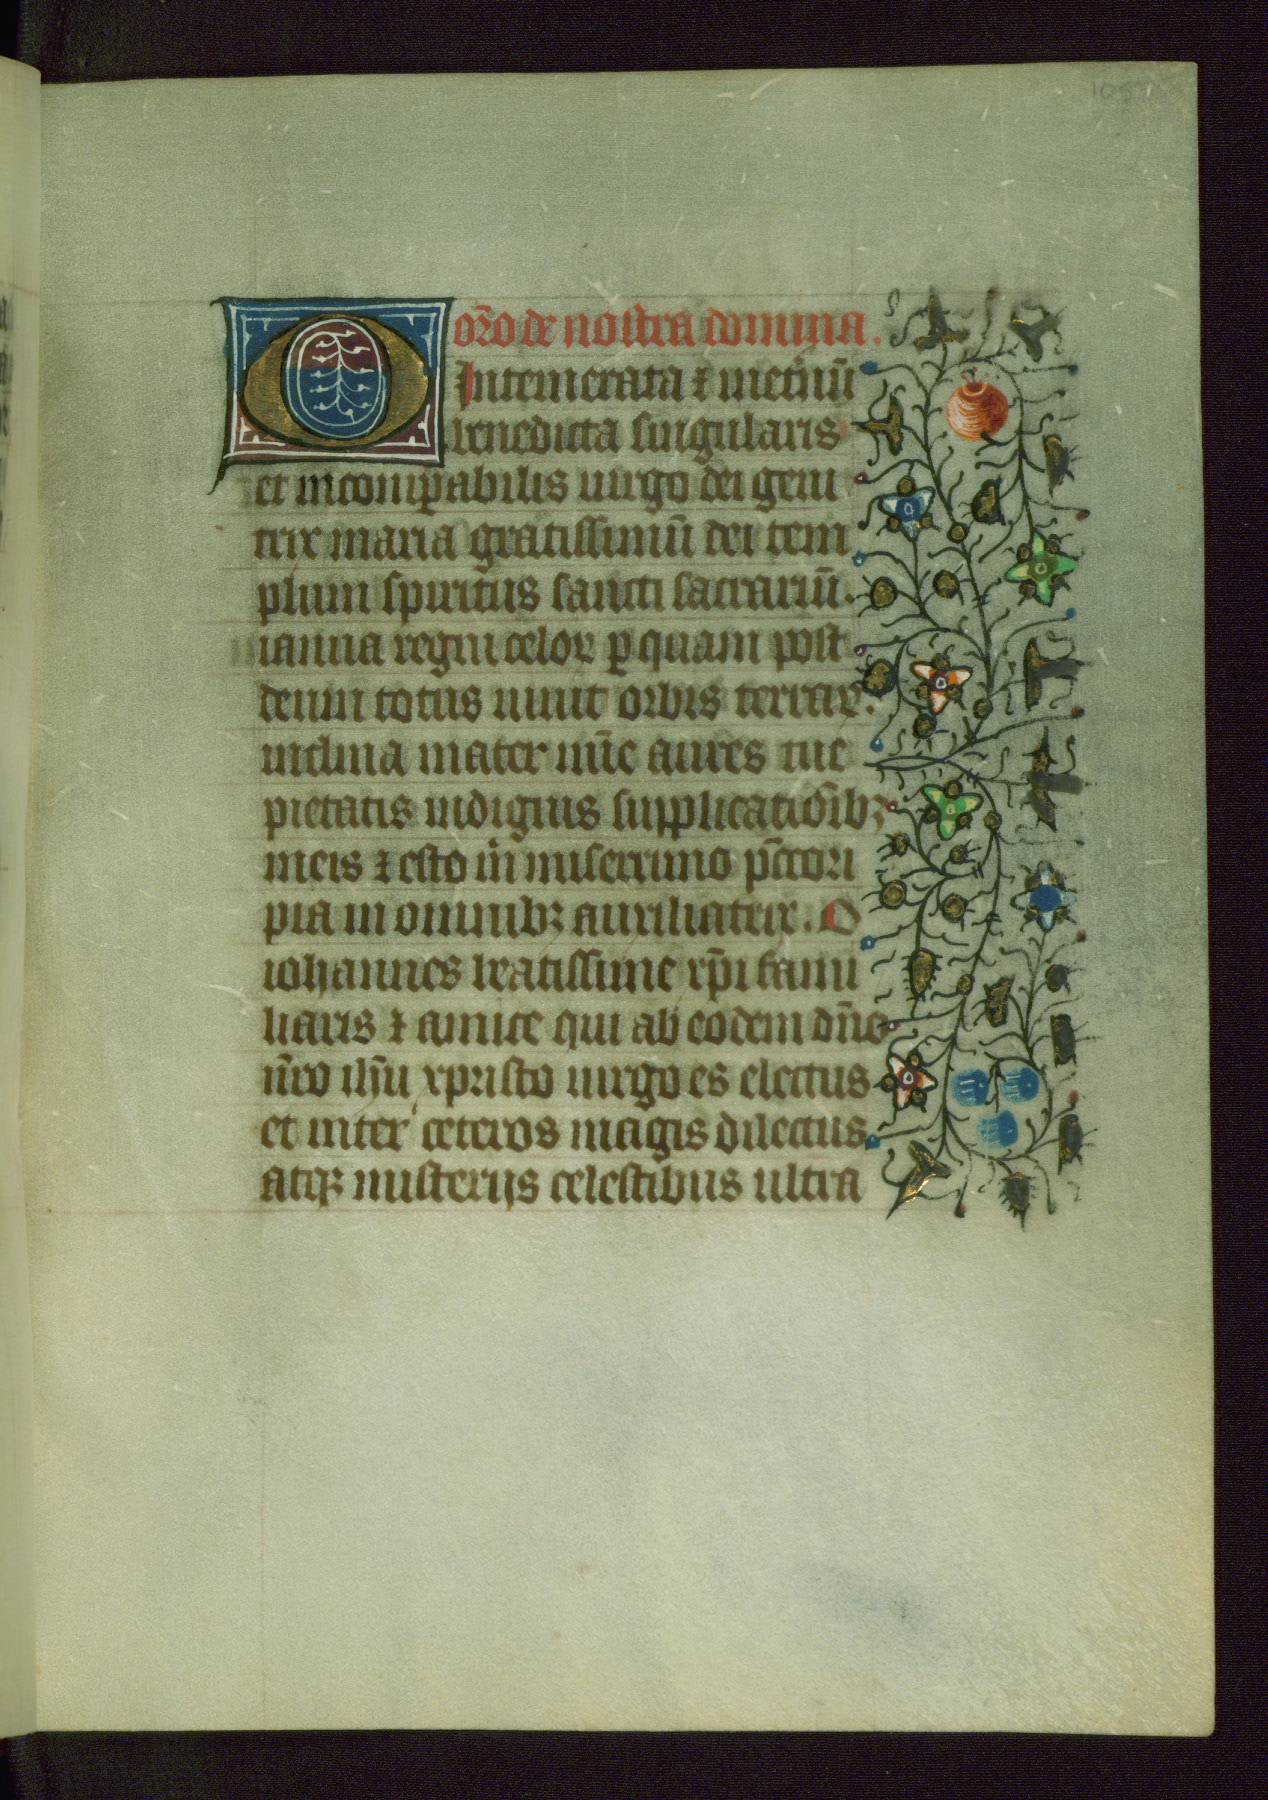 105
or̄o de nostra domina.
O Intemerata ⁊ in etn̄ū
benedicta singularis
et incomꝑabilis uirgo dei geni
trix maria gratissimū dei tem
plum spiritus sancti sacrariū.
ianua regni celoꝝ ꝑ quam post
deum totus uiuit orbis terraꝝ.
inclina mater mīe aures tue
pietatis indignis supplicatiōibꝫ
meis ⁊ esto m̄ miserrimo pc̄cori
pia in omnibꝫ auxiliatrix. O
iohannes beatissime xp̄i fami
liaris ⁊ amice qui ab eodem dn̄o
nr̄o ih̄u xpristo uirgo es electus
et inter ceteros magis dilectus
atqꝫ misterijs celestibus ultra